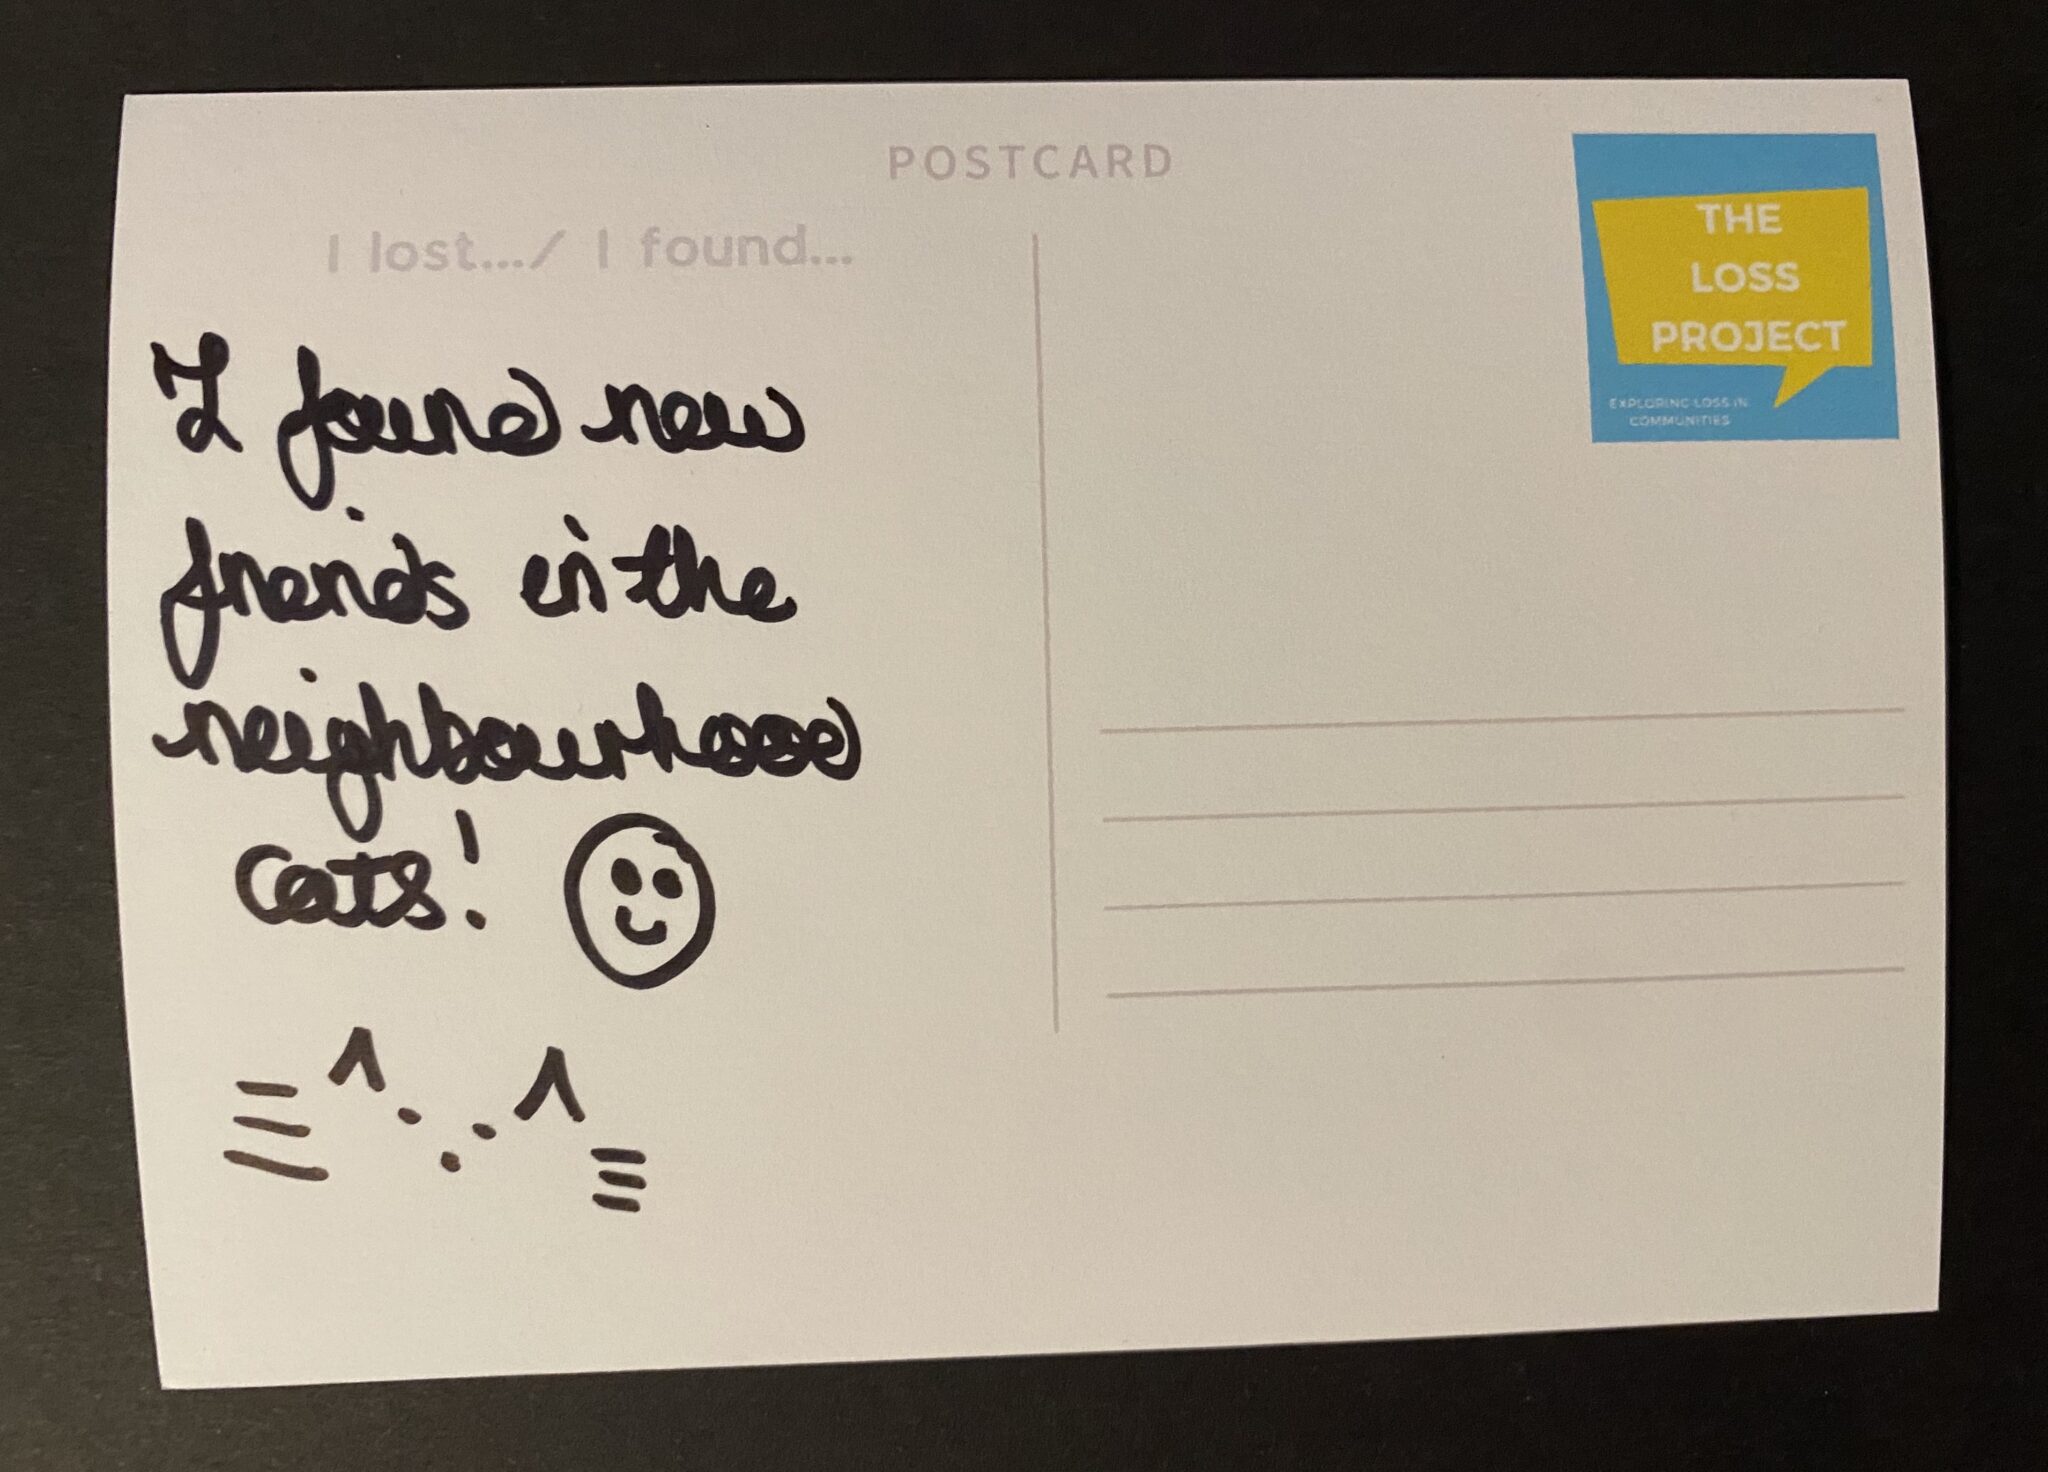 POSTCARD
I lost.../ I found...
THE
LOSS
PROJECT
EXPLORING LOSS IN
COMMUNITIES
I found new
friends in the
neighbourhood
cats!